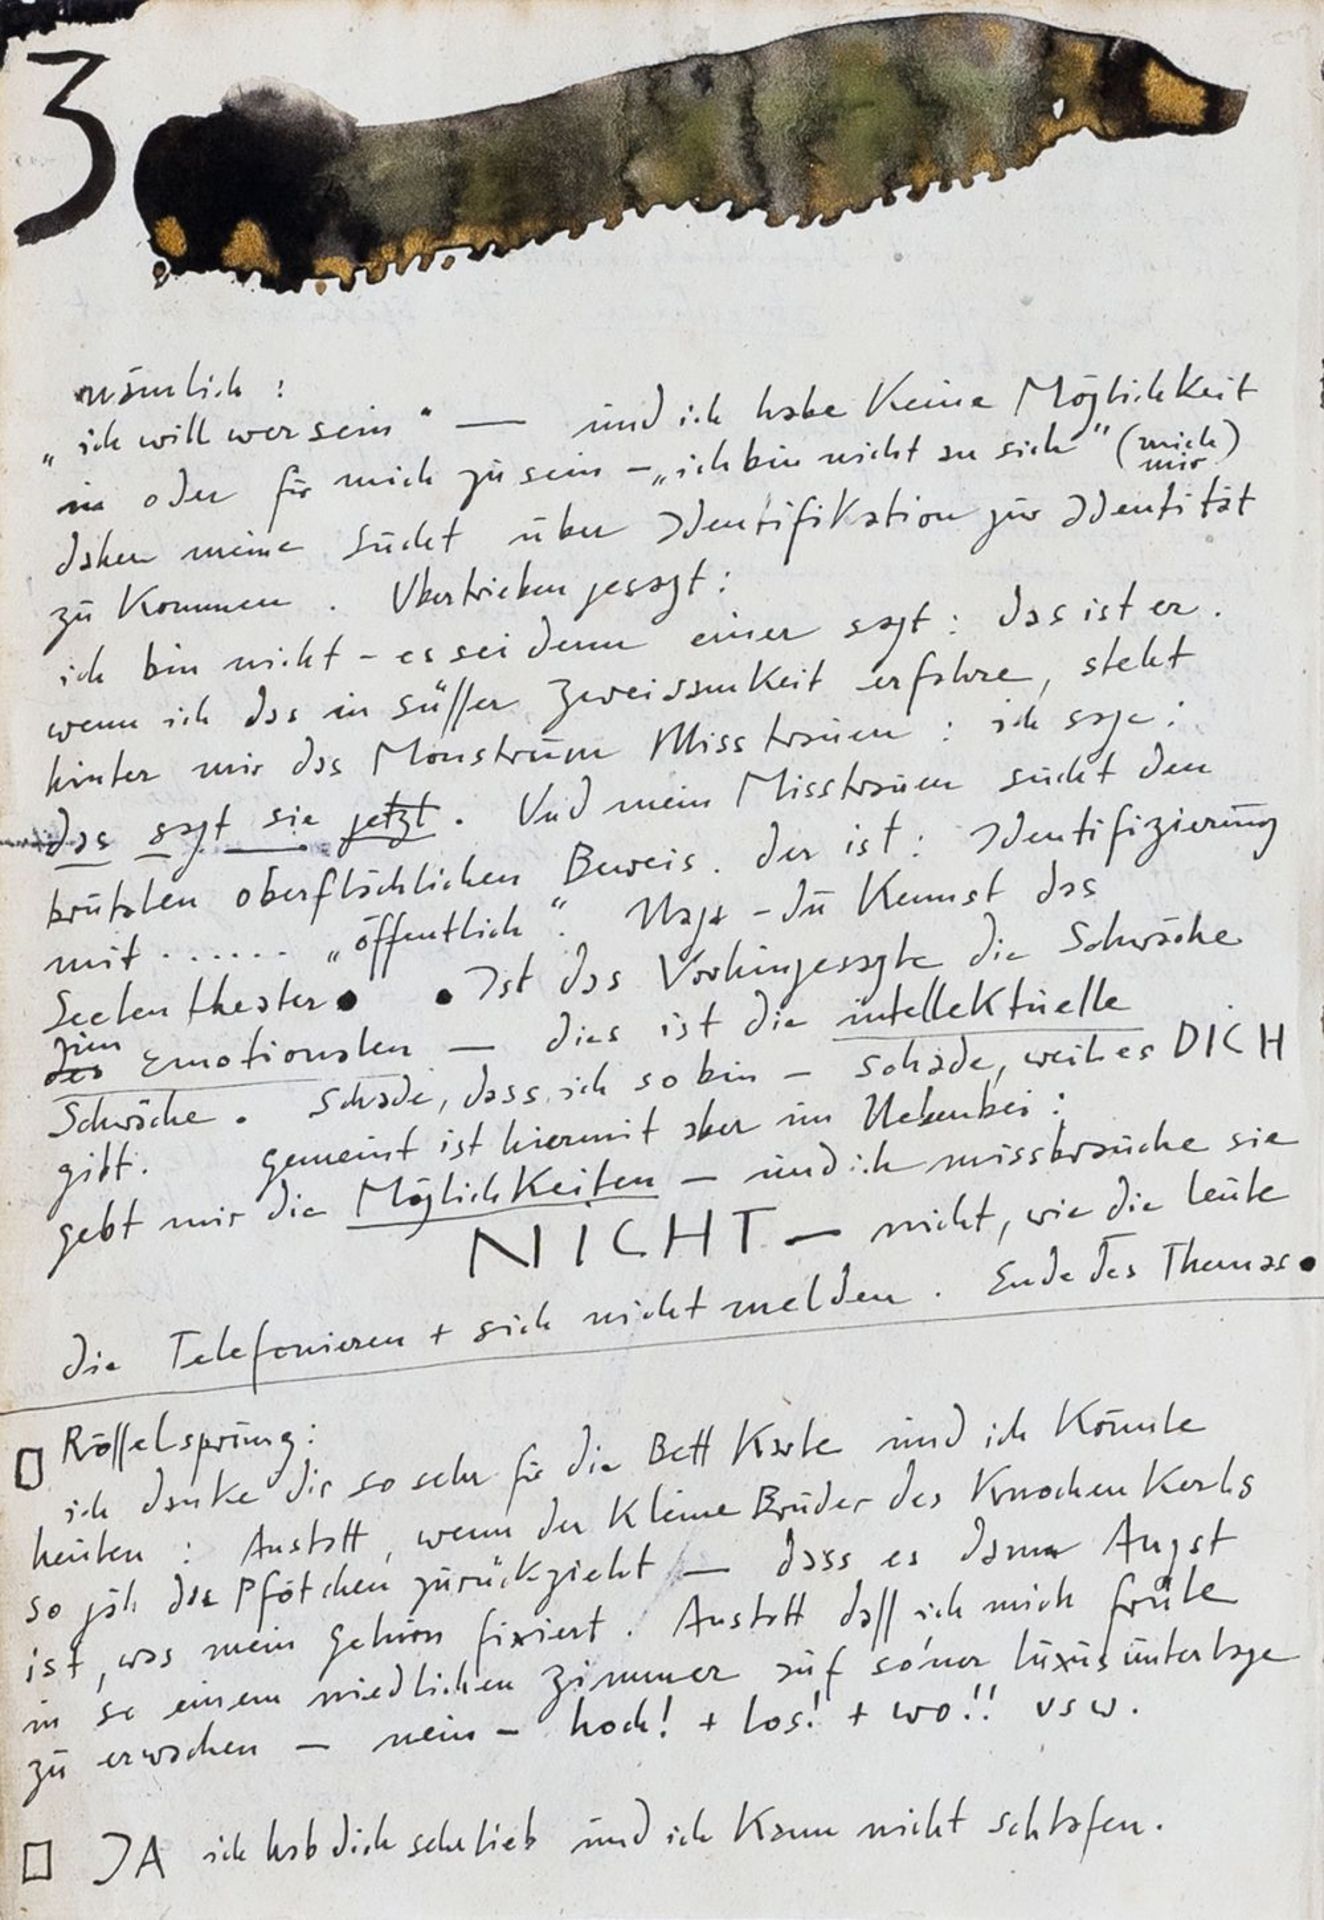 3
nämlich :
„ich will wer sein" — und ich habe keine Möglichkeit
in oder für mich zu sein – „ich bin nicht an sich" (mich mir)
daher meine Sucht über Identifikation zur Identität
zu kommen . Übertrieben gesagt :
ich bin nicht – es sei denn einer sagt : das ist er .
wenn ich das in süßer Zweisamkeit erfahre, steht
hinter mir das Monstrum Misstrauen : ich sage :
das sagt sie jetzt . Und mein Misstrauen sucht den
brutalen oberflächlichen Beweis . der ist : Identifizierung
mit ....... „öffentlich" . Naja – du kennst das
Seelentheater • • Ist das Vorhingesagte die Schwäche
zum
des Emotionalen — dies ist die intellektuelle
Schwäche . Schade, dass ich so bin – schade, weil es DICH
gibt . gemeint ist hiermit aber im Nebenbei :
gebt mir die Möglichkeiten – und ich missbrauche sie
NICHT — nicht, wie die leute
die Telefonieren + sich nicht melden . Ende des Themas •
Rösselsprung :
ich danke dir so sehr für die Bett Karte und ich könnte
heulen : Anstatt, wenn der kleine Bruder des Knochenkerls
so jäh das Pfötchen zurückzieht — dass es dann Angst
ist, was mein gehirn fixiert . Anstatt daß ich mich freute
in so einem niedlichen Zimmer auf so'ner luxusunterlage
zu erwachen — nein – hoch! + los! + wo!! usw .
JA ich hab dich sehr lieb und ich kann nicht schlafen .